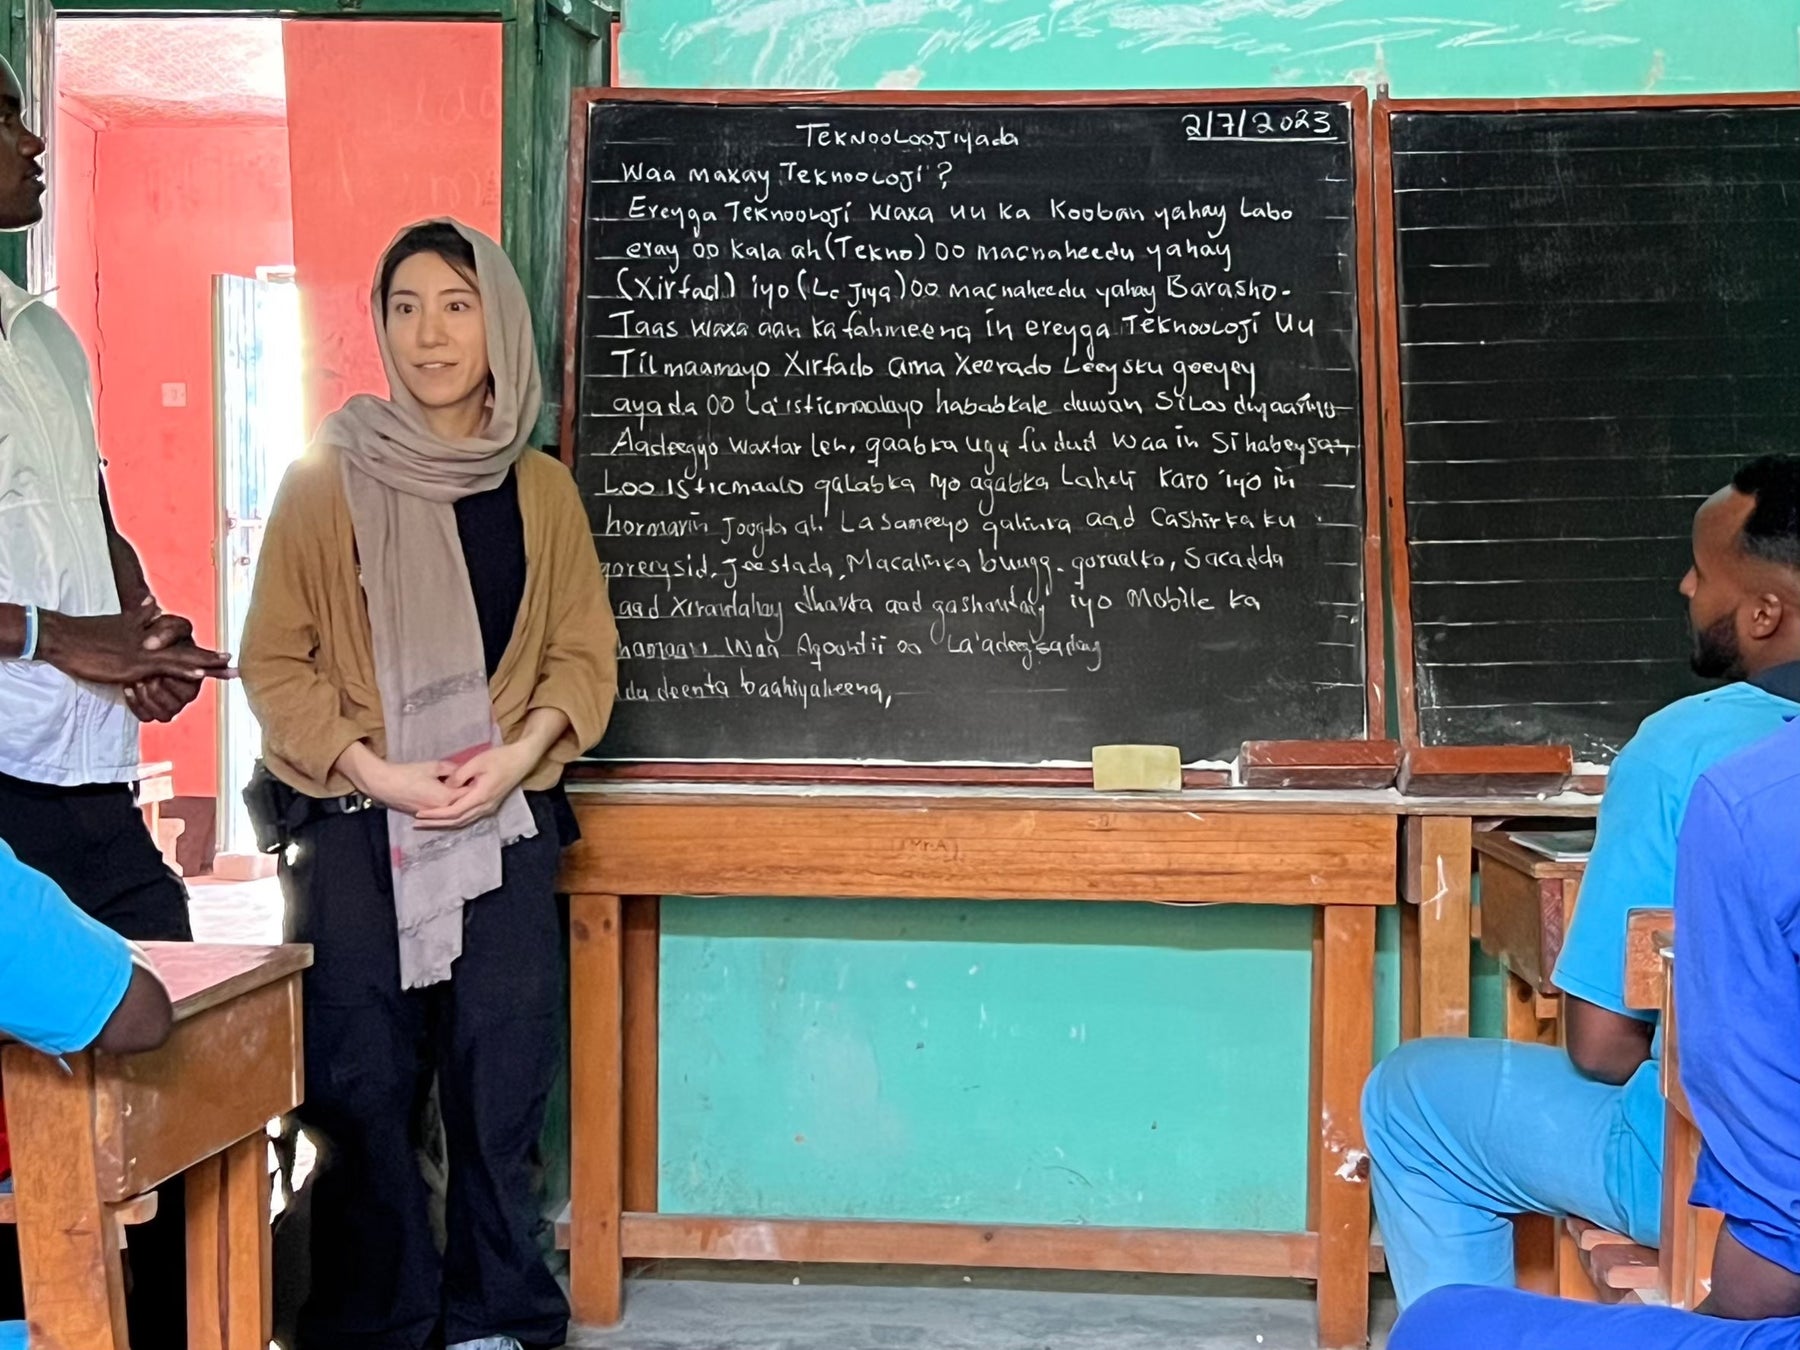 TeKNooLooJiyada
2/7/2023
Waa maxay Teknooloji?
Ereyga Teknooloji waxa uu ka Kooban yahay Labo
eray oo kala ah (Tekno) oo macnaheedu yahay
(Xirfad) iyo (Lo Jiya) oo macnaheedu yahay Barasho-
Taas waxa aan ka fahmeena in ereyga Teknooloji Uu
Tilmaamayo Xirfado ama Xeerado Leeysku geeyey
ayada oo La'isticmaalayo hababkale duwan Siloo diyaariyo
Aadeegyo waxtar leh. qaabka ugu fudud waa in
Loo isticmaalo qalabka iyo agabka Laheli Karo iyo in
hormarin joogta ah. La sameeyo qalinka aad Cashirka ku
qoreysid. jeestada, Macalinka buugg. qoraalka, Sacadda
aad Xirantahay dharka aad iyo Mobile ka
Waa oo
baahiyaheena,